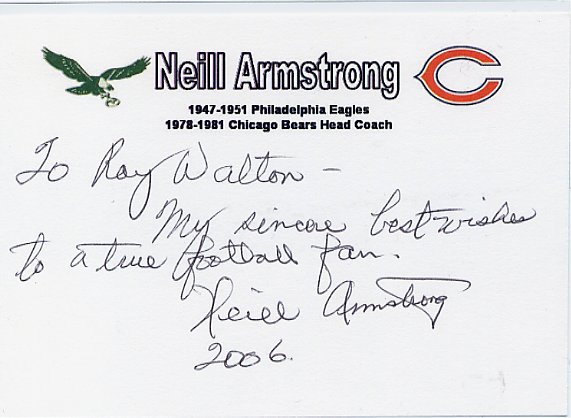 Neill Armstrong
1947-1951 Philadelphia Eagles
1978-1981 Chicago Bears Head Coach
To Ray Walton -
My sincere best wishes
to a true football fan.
Neill Armstrong
2006.